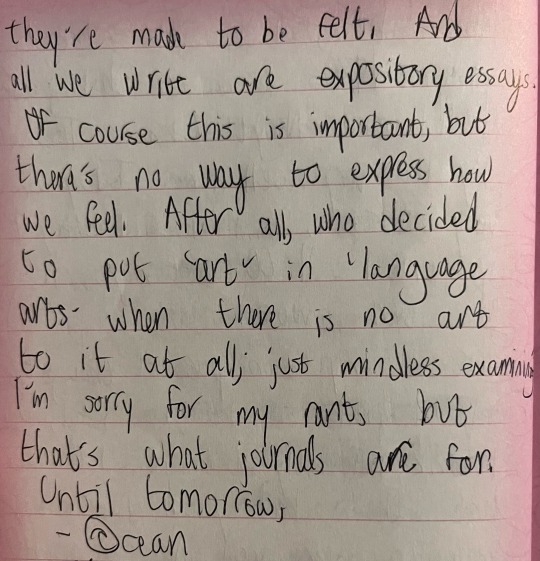 they're made to be felt. And
all we write are expository essays.
Of course this is important, but
thera's no way to express how
we feel. After all, who decided
to put "art" in "language
arts" when there is no art
to it at all; just mindless examining
I'm sorry for my rant, but
that's what journals are for.
Until tomorrow,
- Ocean